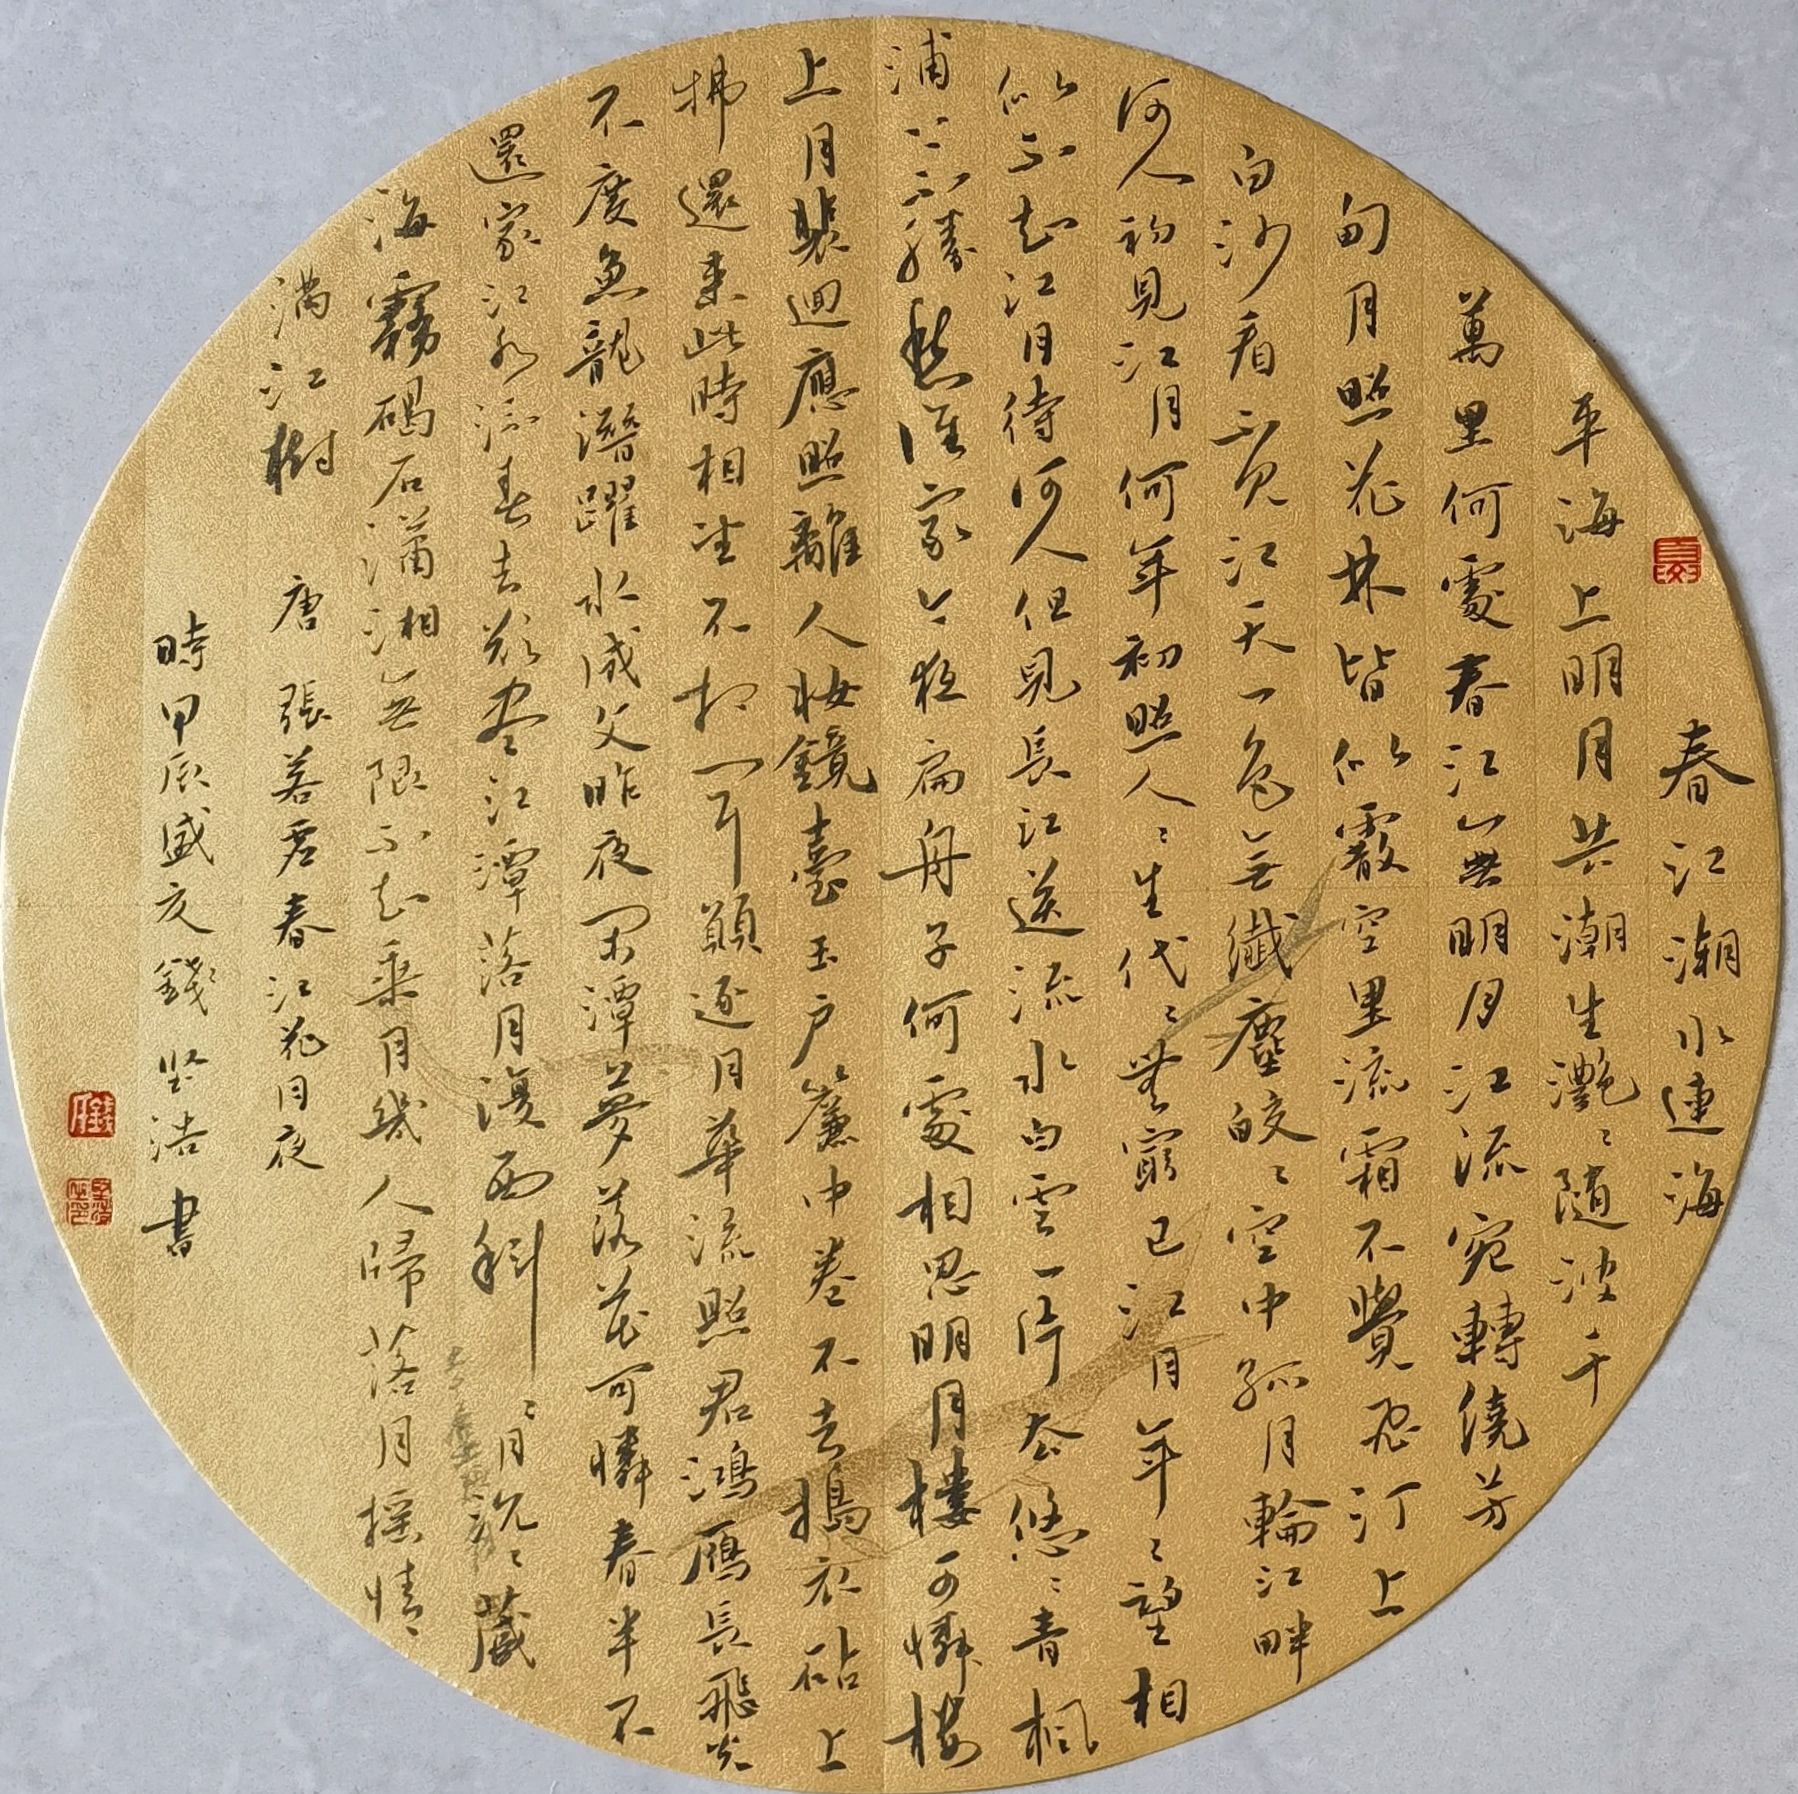 春江潮水連海
平海上明月共潮生灔灔隨波千
萬里何處春江無明月江流宛轉繞芳
甸月照花林皆似霰空里流霜不覺飛汀上
白沙看不見江天一色無纖塵皎皎空中孤月輪江畔
何人初見江月何年初照人人生代代無窮已江月年年望相
似不知江月待何人但見長江送流水白雲一片去悠悠青楓
浦上不勝愁誰家今夜扁舟子何處相思明月樓可憐樓
上月裴迴應照離人妝鏡臺玉戶簾中卷不去搗衣砧上
拂還來此時相望不相聞願逐月華流照君鴻雁長飛光
不度魚龍潛躍水成文昨夜閑潭夢落花可憐春半不
還家江水流春去欲盡江潭落月復西斜斜月沉沉藏
海霧碣石瀟湘無限路不知乘月幾人歸落月搖情
滿江樹 唐 張若虛春江花月夜
時甲辰盛夏錢堅浩書